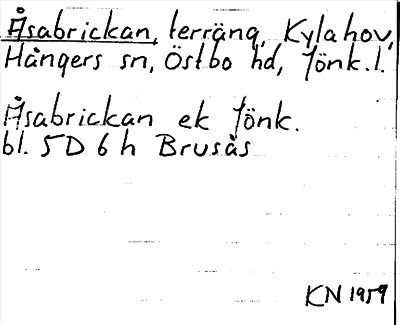 Åsabrickan, terräng, Kylahov,
Hångers sn, Östbo hd, Jönk. l.
Åsabrickan ek Jönk.
bl. 5D 6h Brusås
KN 1959